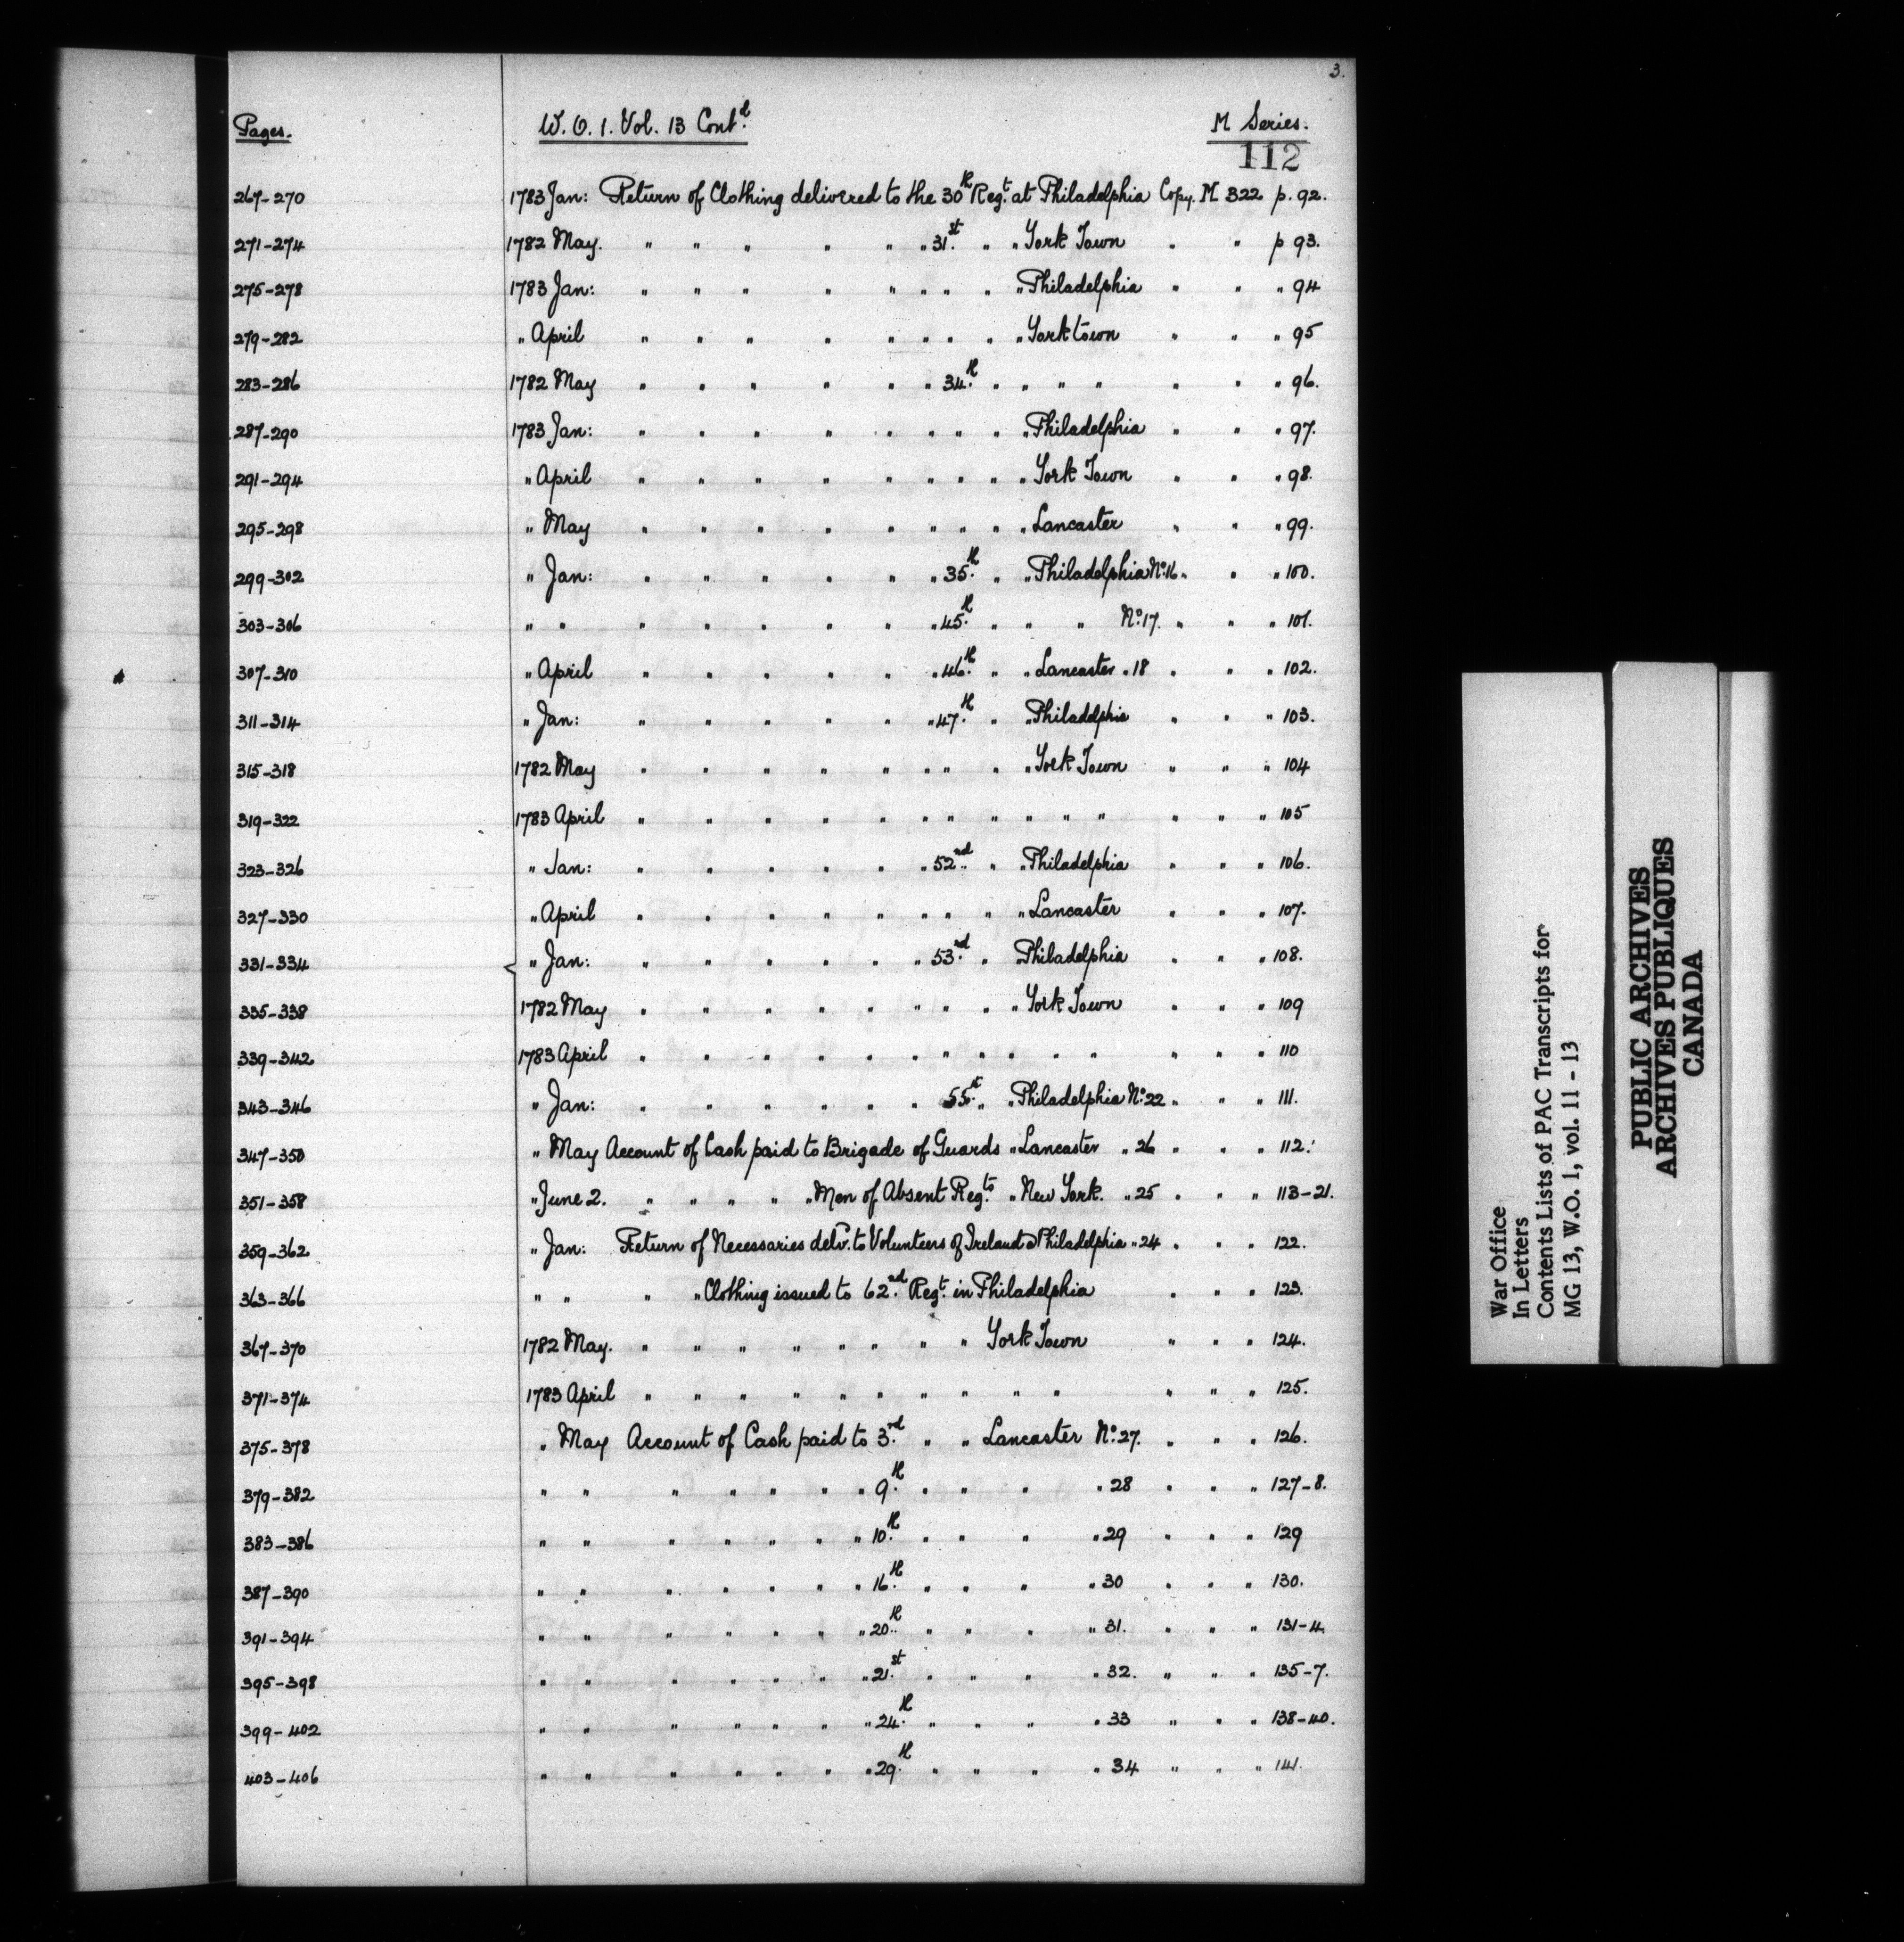 3.
Pages. W. O. 1. Vol. 13 Contd. M Series.
112
267-270 1783 Jan: Return of Clothing delivered to the 30th Regt. at Philadelphia Copy. M 322 p. 92.
271-274 1782 May. " " " " " " 31st. " " York Town " " p 93.
275-278 1783 Jan: " " " " " " " " " Philadelphia " " " 94
279-282 " April " " " " " " " " " Yorktown " " " 95
283-286 1782 May " " " " " " 34th. " " " " " " " 96.
287-290 1783 Jan: " " " " " " " " " Philadelphia " " " 97.
291-294 " April " " " " " " " " " York Town " " " 98.
295-298 " May " " " " " " " " " Lancaster " " " 99.
299-302 " Jan: " " " " " " 35th. " " Philadelphia No. 16 " " " 100.
303-306 " " " " " " " " 45th. " " " No. 17. " " " 101.
307-310 " April " " " " " " 46th. " " Lancaster " 18 " " " 102.
311-314 " Jan: " " " " " " 47th. " " Philadelphia " " " 103.
315-318 1782 May " " " " " " " " " York Town " " " 104
319-322 1783 April " " " " " " " " " " " " " " 105
323-326 " Jan: " " " " " " 52nd. " " Philadelphia " " " 106.
327-330 " April " " " " " " " " " Lancaster " " " 107.
331-334 " Jan: " " " " " " 53rd. " " Philadelphia " " " 108.
335-338 1782 May " " " " " " " " " York Town " " " 109
339-342 1783 April " " " " " " " " " " " " " " 110
343-346 " Jan: " " " " " " 55th. " " Philadelphia No. 22 " " " 111.
347-350 " May Account of Cash paid to Brigade of Guards " Lancaster " 26 " " " 112.
351-358 " June 2. " " " " " Men of Absent Regts. " New York. " 25 " " " 113-21.
359-362 " Jan: Return of Necessaries delv. to Volunteers of Ireland " Philadelphia " 24 " " " 122.
363-366 " " " " Clothing issued to 62nd. Regt. in Philadelphia " " " 123.
367-370 1782 May. " " " " " " " " York Town " " " 124.
371-374 1783 April " " " " " " " " " " " " " 125.
375-378 " May Account of Cash paid to 3rd. " " Lancaster No. 27. " " " 126.
379-382 " " " " " " " 9th. " " " " 28 " " " 127-8.
383-386 " " " " " " " 10th. " " " " 29 " " " 129
387-390 " " " " " " " 16th. " " " " 30 " " " 130.
391-394 " " " " " " " 20th. " " " " 31. " " " 131-4.
395-398 " " " " " " " 21st. " " " " 32. " " " 135-7.
399-402 " " " " " " " 24th. " " " " 33 " " " 138-40.
403-406 " " " " " " " 29th. " " " " 34 " " " 141.
War Office
In Letters
Contents Lists of PAC Transcripts for
MG 13, W.O. 1, vol. 11 - 13
PUBLIC ARCHIVES
ARCHIVES PUBLIQUES
CANADA